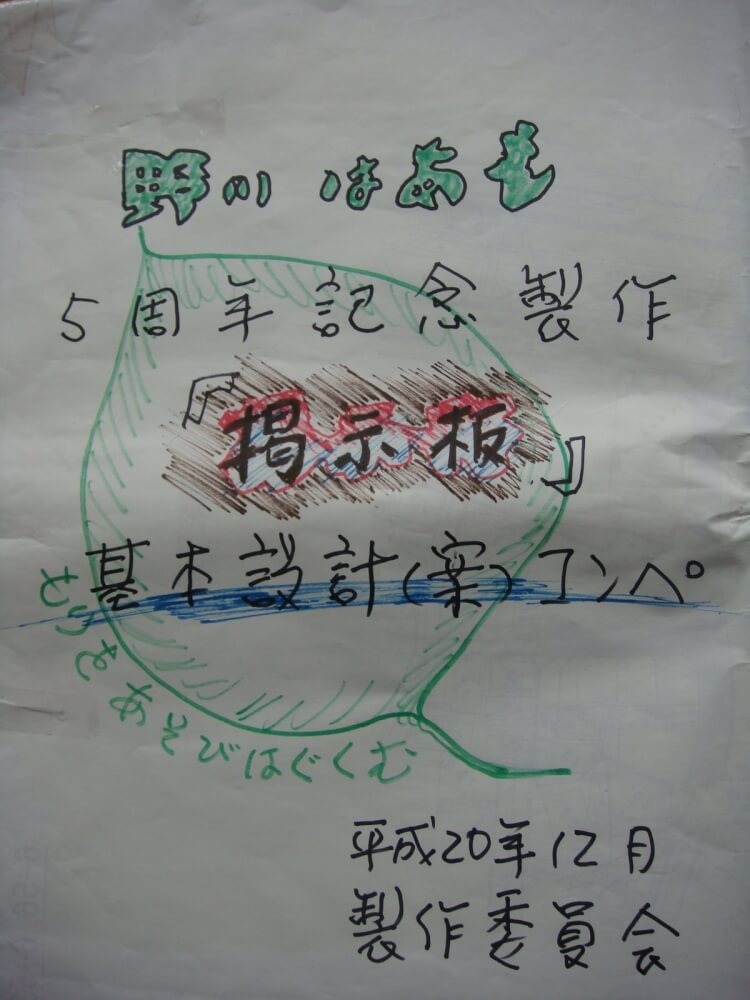 野川はあも
5周年記念製作
『掲示板』
基本設計(案)コンペ
もりをあそびはぐくむ
平成20年12月
製作委員会